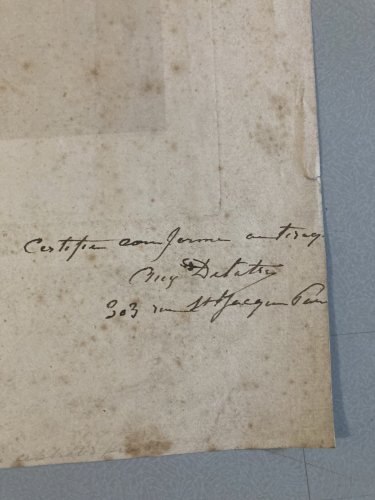 Certifié conforme au tirage
Aug<sup>te</sup> Delâtre
303 rue St Jacques Paris